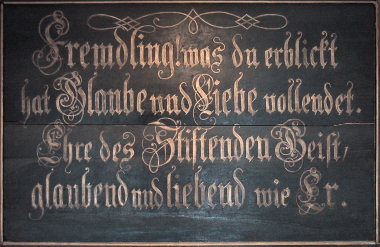 Fremdling! was du erblickt
hat Glaube und Liebe vollendet.
Ehre des Stiftenden Geist,
glaubend und liebend wie Er.